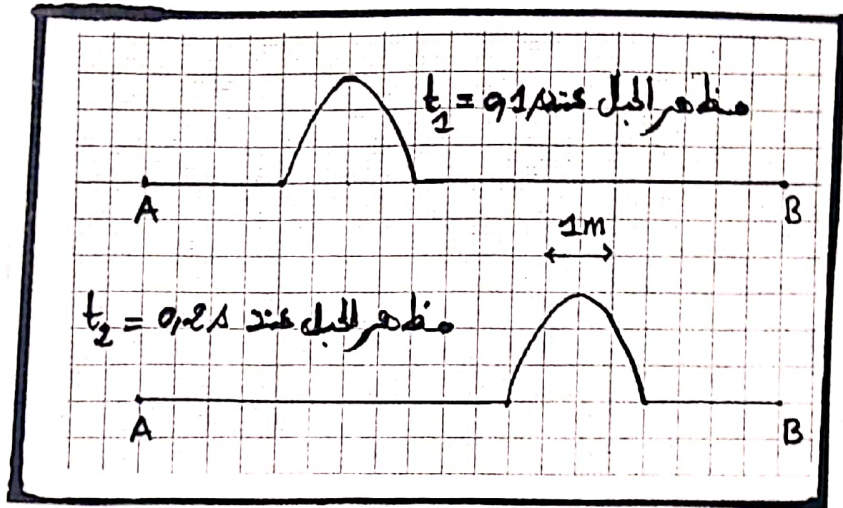 مظهر الحبل عند t₁ = 0,1s
A
B
1m
مظهر الحبل عند t₂ = 0,2s
A
B